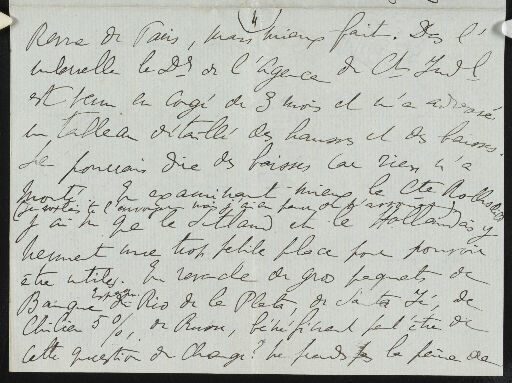 4
Revue de Paris, mais mieux fait. Dès l'
intervalle le Dr de l'Agence du Ct Indl
est venu en congé de 3 mois et m'a adressé
un tableau détaillé des hausses et des baisses.
Je pourrais dire des baisses car rien n'a
monté. En examinant mieux le Cte
je voulais te l'envoyer mais j'ai eu peur de
j'ai vu que le et le Hollandais y
tiennent une trop petite place pour pouvoir
être utiles. En revanche de gros paquets de
Banque Espagn. de Rio de la Plata, de Santa Fé, de
Chilien 5 %, de Russe, bénéficient peut être de
cette question de change? ne prends pas la peine de